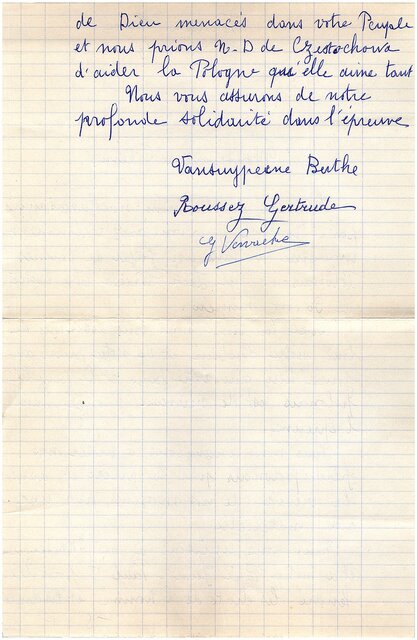 de Dieu menacés dans votre Peuple
et nous prions N-D de Czestochowa
d'aider la Pologne qu'elle aime tant
Nous vous assurons de notre
profonde solidarité dans l'épreuve
Berthe
Roussez Gertrude